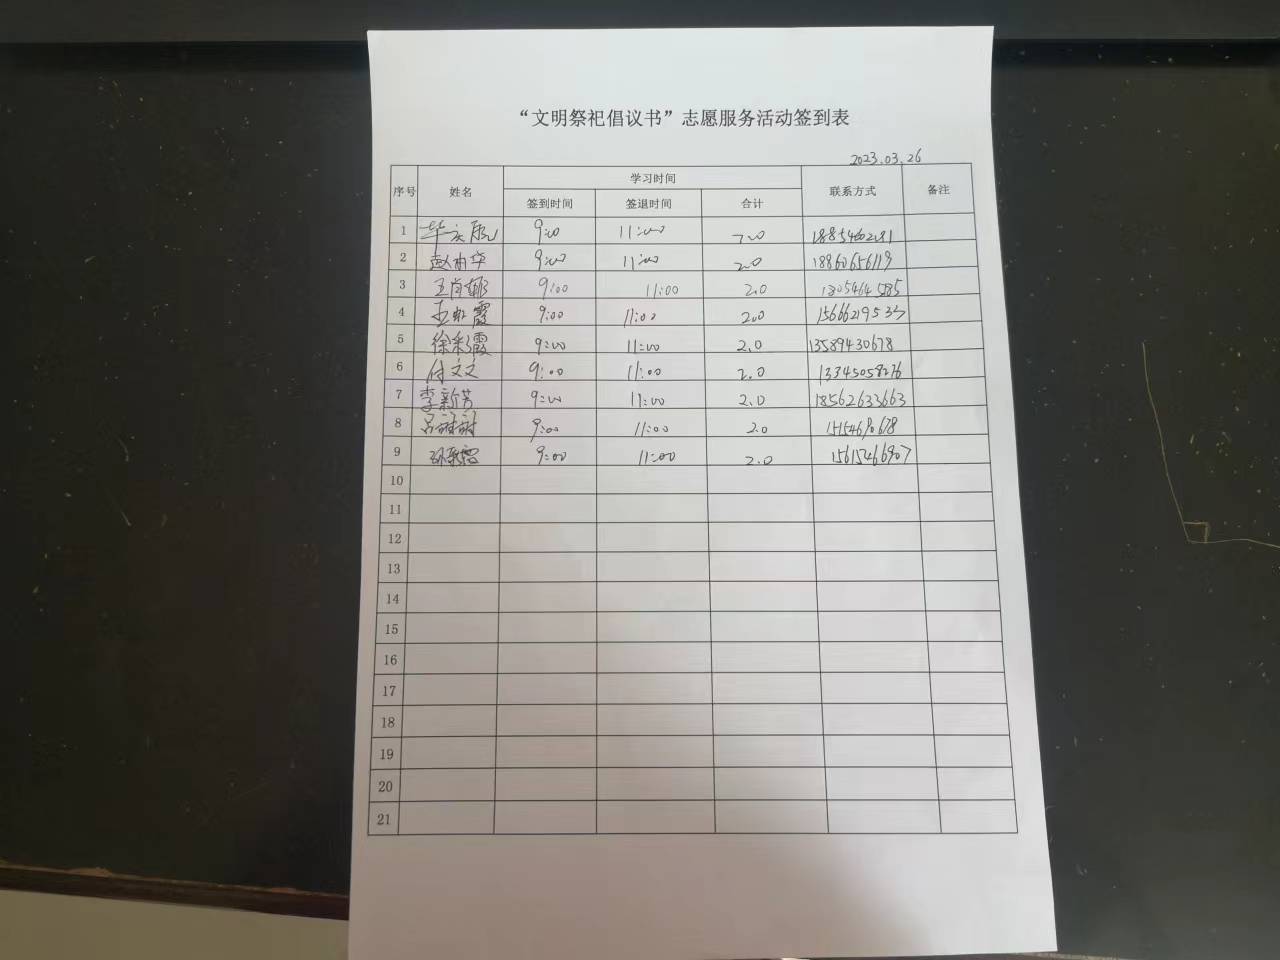 “文明祭祀倡议书”志愿服务活动签到表
2023.03.26
序号 姓名 学习时间 联系方式 备注
签到时间 签退时间 合计
1 9:00 11:00 2.0
2 9:00 11:00 2.0 18860656119
3 9:00 11:00 2.0
4 9:00 11:00 2.0
5 徐彩霞 9:00 11:00 2.0 13589430678
6 付文文 9:00 11:00 2.0 13345058276
7 李新芳 9:00 11:00 2.0 18562633663
8 9:00 11:00 2.0
9 9:00 11:00 2.0 15615466907
10
11
12
13
14
15
16
17
18
19
20
21